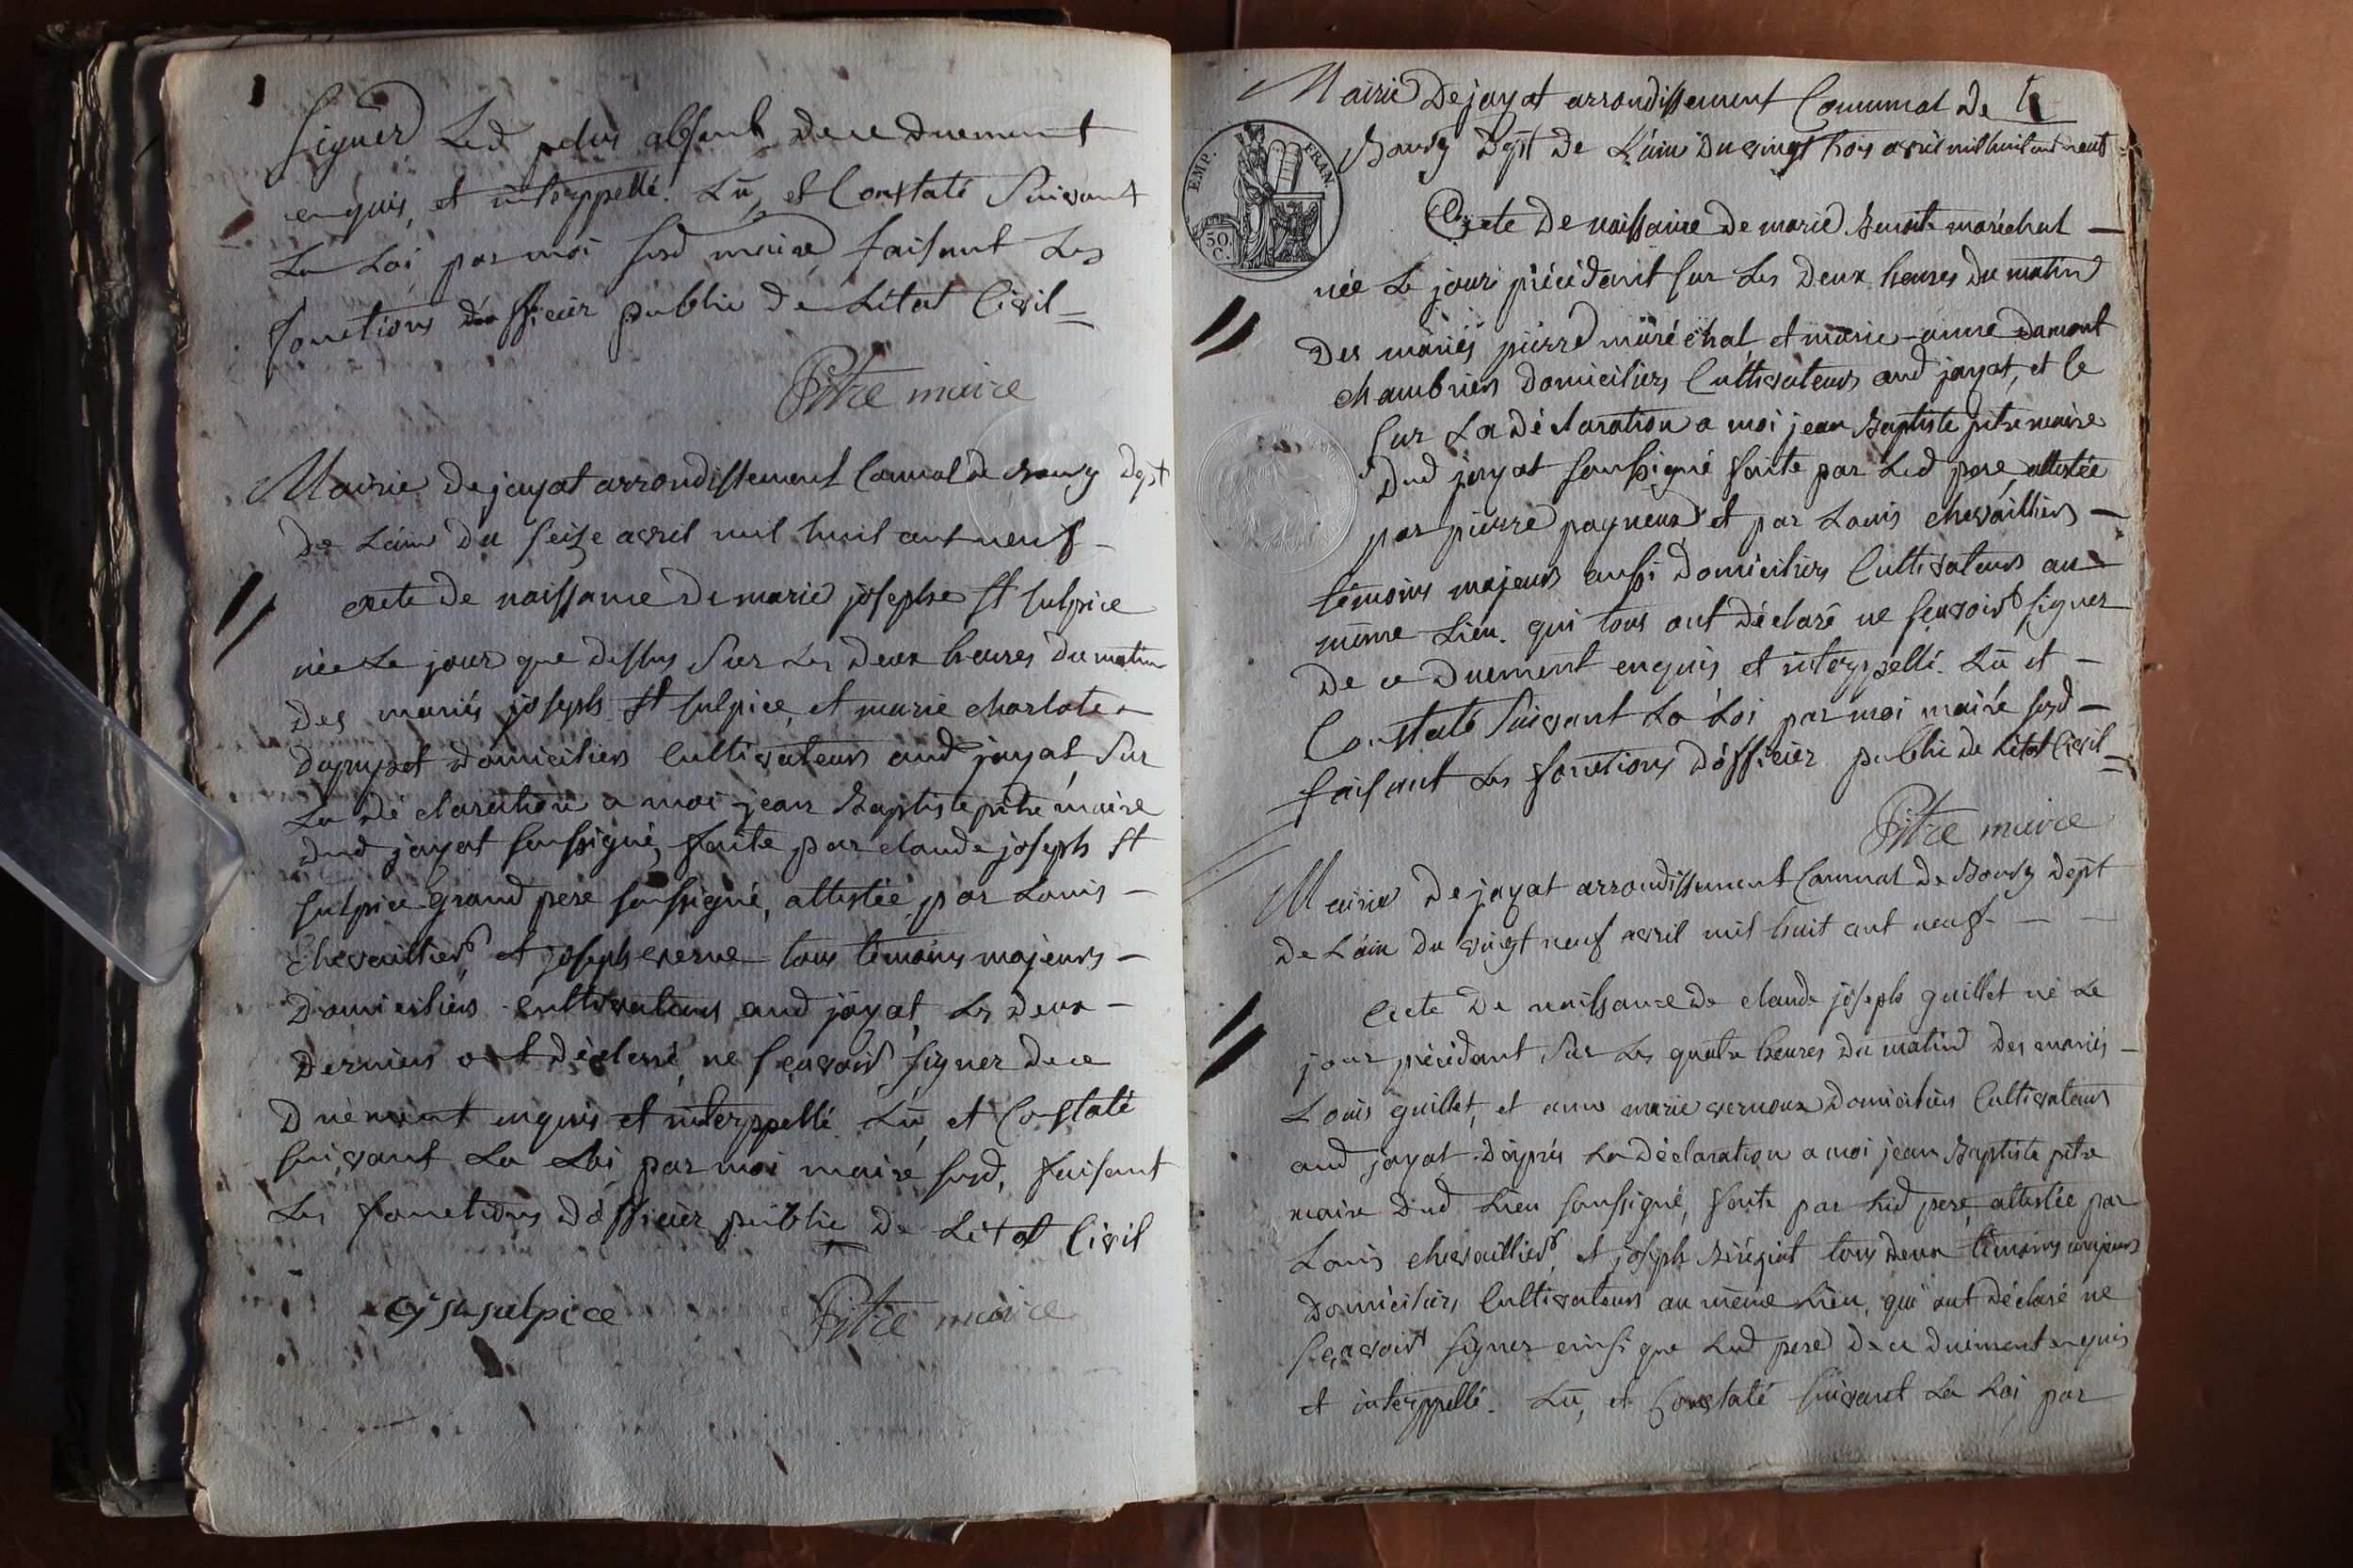 signer Led pdus absent de ce duement
enquis, et interppellé. Lû, et Constaté Suivant
La Loi par moi susd maire faisant Les
fonctions d'officier public de Létat Civil
Pitre maire
Mairie de jayat arrondissement Comual de Bourg Dept
de Lain du seize avril mil huit cent neuf
acte de naissance de marie josephe St sulpice
née Le jour que dessus Sur Les deux heures du matin
des mariés joseph St sulpice, et marie charlote
domiciliés Cultivateurs aud jayat, Sur
La déclaration a moi jean Baptiste pitre maire
dud jayat soussigné, faite par claude joseph St
sulpice grand pere soussigné, attestée par Louis
Chevaillier, et joseph verne tous témoins majeurs
domiciliés Cultivateurs aud jayat, Les deux
derniers ont déclaré ne sçavoir signer de ce
duement enquis et interppellé Lû, et Constaté
suivant La Loi par moi maire susd, faisant
Les fonctions d'officier public de Létat Civil
cj st sulpice Pitre maire
Mairie de jayat arrondissement Communal de
EMP. FRAN.
50. C.
Bourg Dept de L'ain du vingt trois avril mil huit cent neuf
Acte de naissance de marie Benoite maréchal
née Le jour précédant sur Les deux heures du matin
des mariés pierre maréchal et marie-anne damont
chambriers domiciliés Cultivateurs aud jayat, et Ce
sur La déclaration a moi jean Baptiste pitre maire
dud jayat soussigné faite par Led pere, attestée
par pierre pagneux et par Louis chevaillier
témoins majeurs aussi domiciliés Cultivateurs au
même Lieu. qui tous ont déclaré ne sçavoir signer
de ce duement enquis et interppellé. Lû et
Constaté Suivant La Loi par moi maire susd
faisant Les fonctions d'officier public de Létat Civil
Pitre maire
Mairie de jayat arrondissement Communal de Bourg dept
de Lain du vingt neuf avril mil huit cent neuf
Acte de naissance de claude joseph guillet né Le
jour précédant Sur Les quatre heures du matin des mariés
Louis guillet, et anne marie vernoux domiciliés Cultivateurs
aud jayat. d'après La déclaration a moi jean Baptiste pitre
maire dud Lieu soussigné, faite par Led pere, attestée par
Louis chevaillier, et joseph tous deux témoins majeurs
domiciliés Cultivateurs au même Lieu, qui ont déclaré ne
sçavoir signer ainsi que Led pere de ce duement enquis
et interppellé. Lû, et Constaté suivant La Loi, par